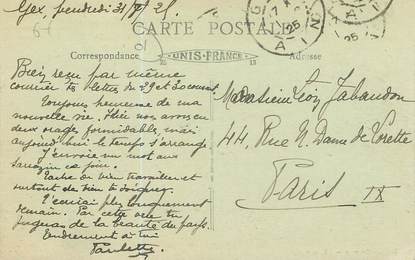 Gex, vendredi 31/7/25.
CARTE POSTALE
Correspondance
UNIS-FRANCE
Adresse
Bien reçu par même
courrier ts lettres du 29 et 30 courant.
Toujours heureuse de ma
nouvelle vie. Hier nous avons eu
deux orages formidables, mais
aujourd'hui le temps s'arrange.
J'envoie un mot aux
ce jour.
Tâche de bien travailler et
surtout de bien te soigner.
T'écrirai plus longuement
demain. Par cette vue tu
jugeras de la beauté du pays.
Tendrement à toi
Paulette
Monsieur Léon Jabaudon
44, Rue N. Dame de Lorette
Paris IX